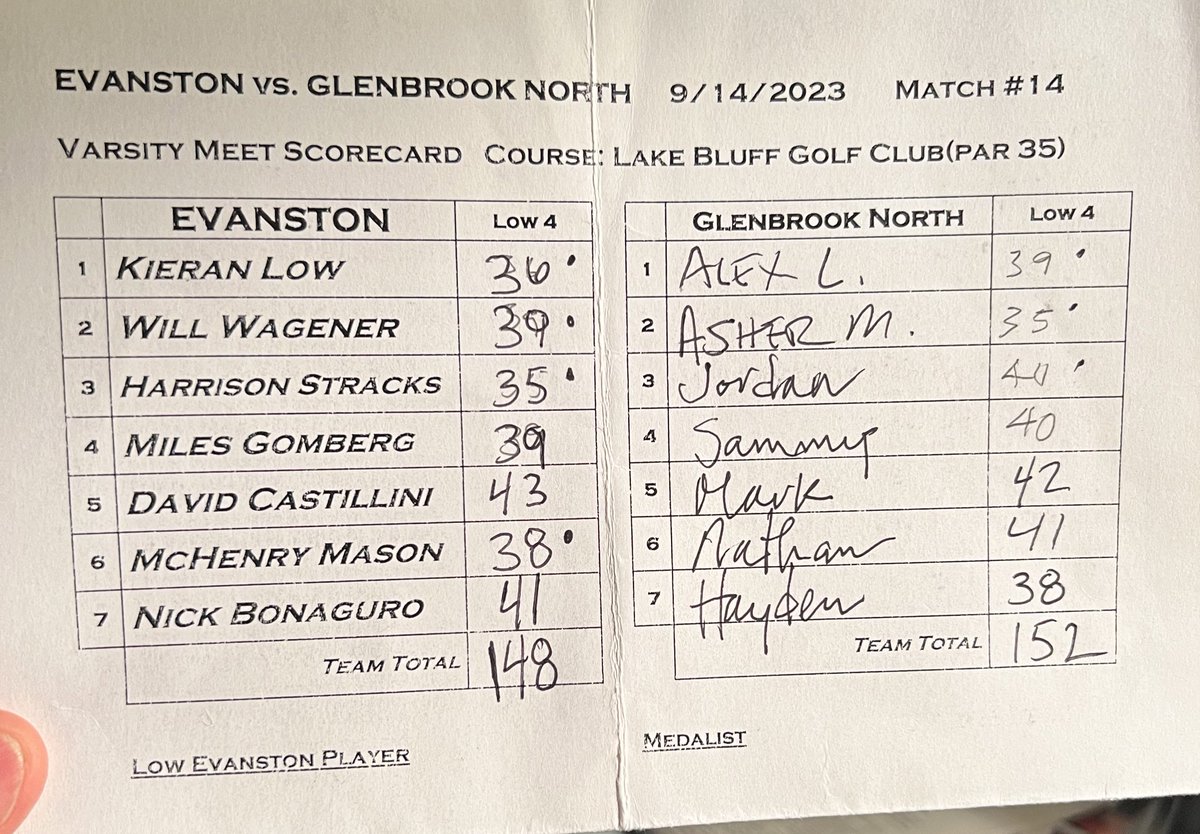 EVANSTON VS. GLENBROOK NORTH 9/14/2023 MATCH #14
VARSITY MEET SCORECARD COURSE: LAKE BLUFF GOLF CLUB(PAR 35)
EVANSTON LOW 4
1 KIERAN LOW 36 •
2 WILL WAGENER 39 •
3 HARRISON STRACKS 35 •
4 MILES GOMBERG 39
5 DAVID CASTILLINI 43
6 MCHENRY MASON 38 •
7 NICK BONAGURO 41
TEAM TOTAL 148
LOW EVANSTON PLAYER
GLENBROOK NORTH LOW 4
1 ALEX L. 39 •
2 ASHER M. 35 •
3 Jordan •
4 Sammy 40
5 Mark 42
6 Nathan 41
7 Hayden 38
TEAM TOTAL 152
MEDALIST